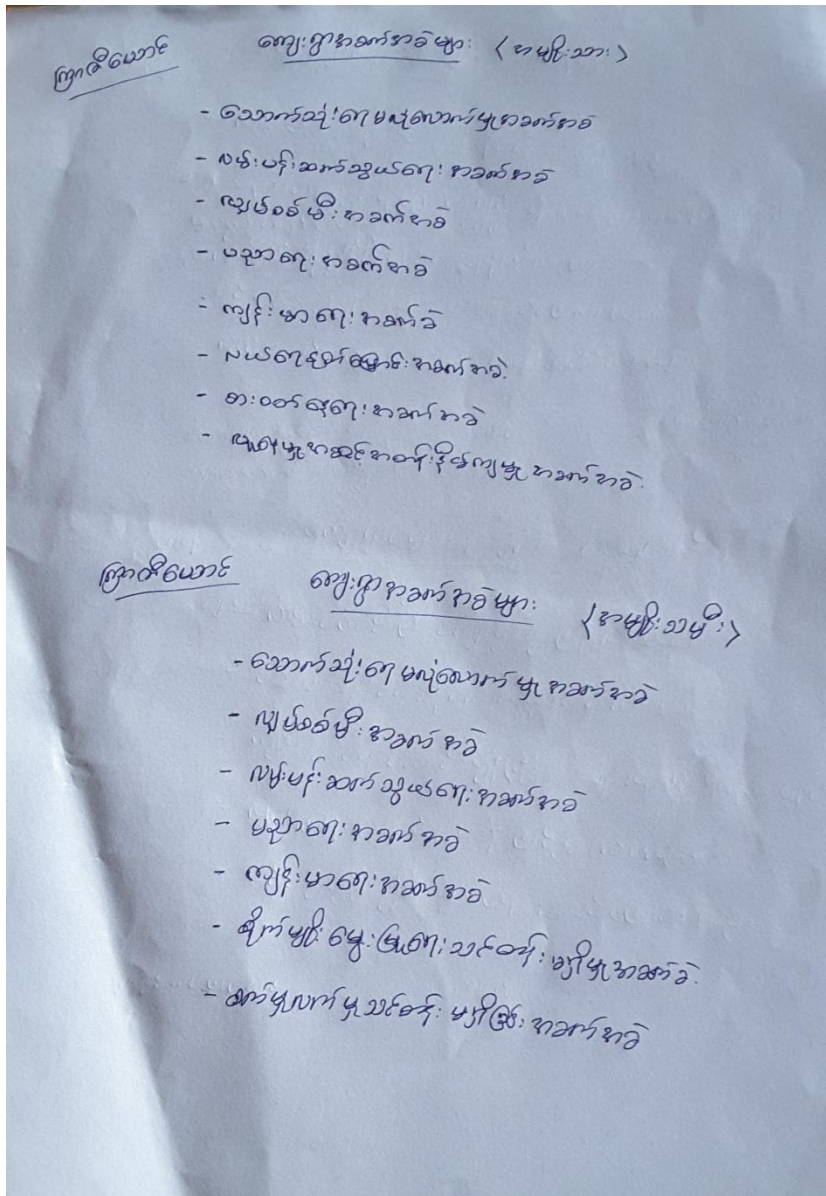 ကြာတီယောင် ကျေးရွာအခက်အခဲများ (အမျိုးသား)
- သောက်သုံးရေမလုံလောက်မှုအခက်အခဲ
- လမ်းပန်းဆက်သွယ်ရေးအခက်အခဲ
- လျှပ်စစ်မီးအခက်အခဲ
- ပညာရေးအခက်အခဲ
- ကျန်းမာရေးအခက်ခဲ
- လယ်ရေမြောင်းအခက်အခဲ
- စားဝတ်နေရေးအခက်အခဲ
- လူနေမှုအဆင့်အတန်းနိမ့်ကျမှုအခက်အခဲ
ကြာတီယောင် ကျေးရွာအခက်အခဲများ (အမျိုးသမီး)
- သောက်သုံးရေမလုံလောက်မှုအခက်အခဲ
- လျှပ်စစ်မီးအခက်အခဲ
- လမ်းပန်းဆက်သွယ်ရေးအခက်အခဲ
- ပညာရေးအခက်အခဲ
- ကျန်းမာရေးအခက်အခဲ
- စိုက်ပျိုးမွေးမြူရေးသင်တန်းမရှိမှုအခက်ခဲ
- စက်မှုလက်မှုသင်တန်းမရှိခြင်းအခက်အခဲ